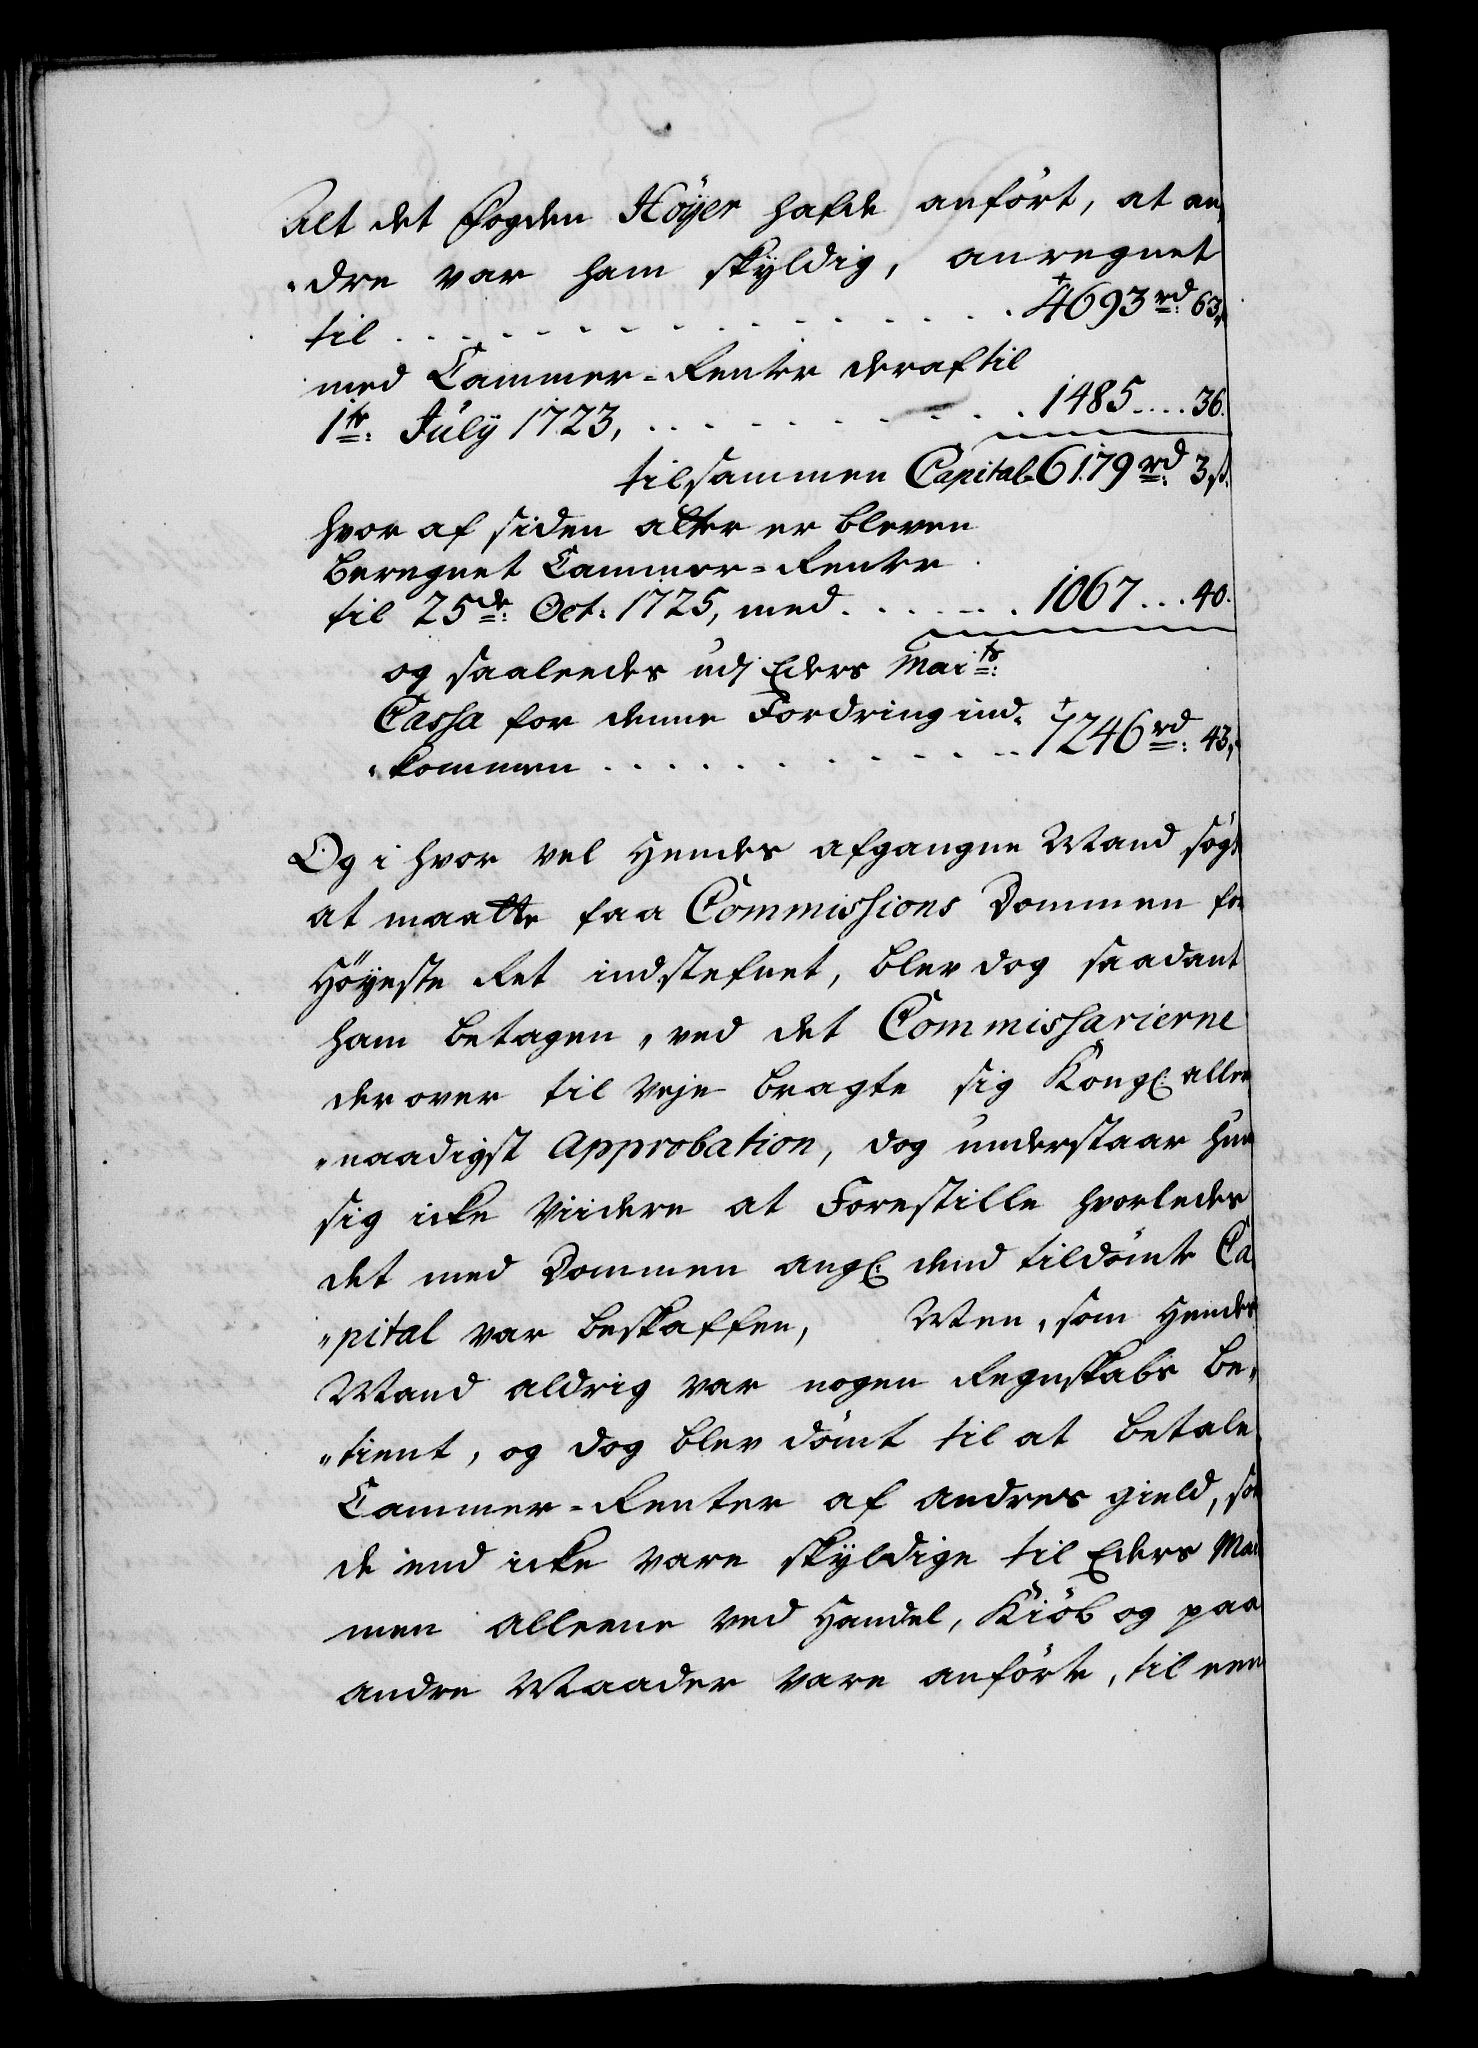 Alt det Fogden Höyer hafde anfört, at an,
„dre var ham skyldig, anregnet
til . . . . . . . . . . . . . . . 4693 rd: 63,
med Cammer-Renter deraf til
1te: July 1723, . . . . . . . . . 1485 .... 36.
tilsammen Capital 6179 rd: 3 s.
hvor af siden atter er bleven
beregnet Cammer-Renter
til 25de: Oct: 1725, med . . . . . . 1067 ... 40.
og saaledes udj Eders Maits:
Cassa for denne Fordring ind-
„kommen . . . . . . . . . . . . 7246 rd: 43,
Og i hvor vel Hendes afgangne Mand sögt
at maatte faa Commissions Dommen for
Höyeste Ret indstefnet, blev dog saadant
ham betagen, ved det Commissarierne
derover til veje bragte sig Kongl: aller
„naadigst Approbation, dog understaar hun
sig icke viidere at Forestille hvorledes
det med Dommen angl: dend tildömte Ca
„pital var beskaffen, Men, som Hendes
Mand aldrig var nogen Regnskabs Be,
„tient, og dog blev dömt til at betale
Cammer-Renter af andres gield, som
de end icke vare skyldige til Eders Mai
men alleene ved Handel, Kiöb og paa
andre Maader vare anförte, til een